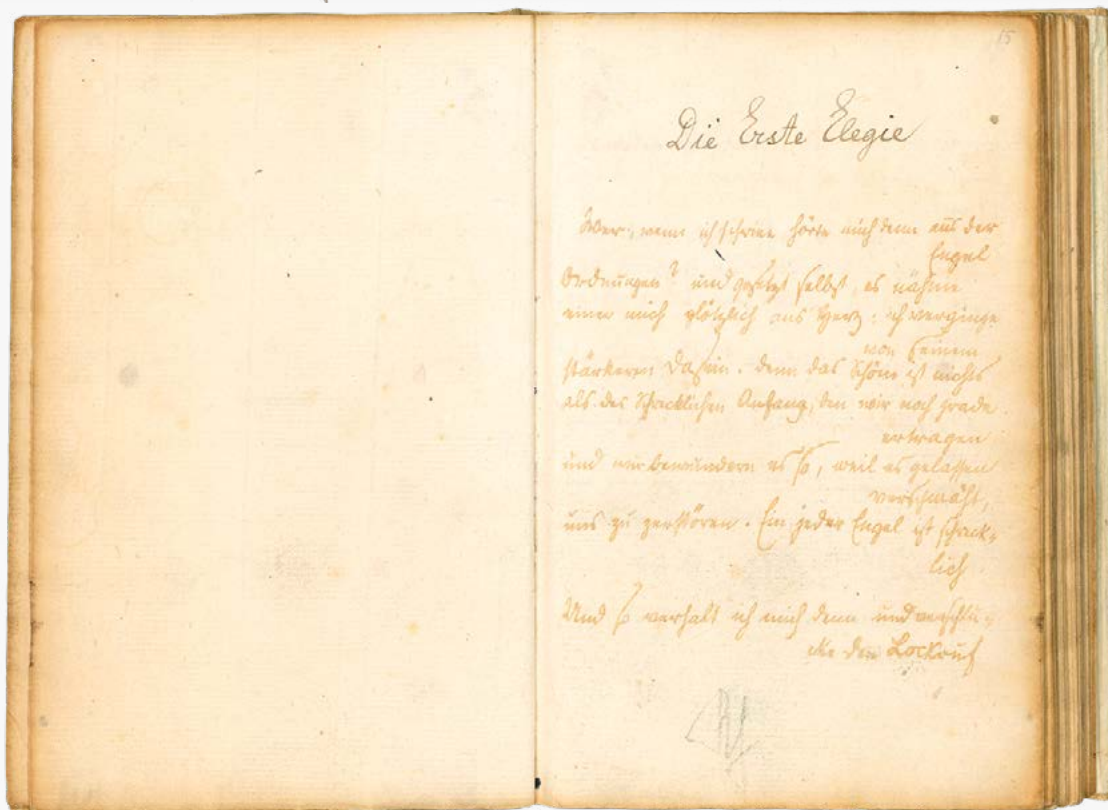 15
Die Erste Elegie
Wer, wenn ich schriee hörte mich denn aus der
Engel
Ordnungen? und gesetzt selbst, es nähme
einer mich plötzlich ans Herz: ich verginge
von seinem
stärkeren Dasein. denn das Schöne ist nichts
als des Schrecklichen Anfang, den wir noch grade
ertragen
und wir bewundern es so, weil es gelassen
verschmäht,
uns zu zerstören. Ein jeder Engel ist schreck-
lich
Und so verhalt ich mich denn und verschlu-
cke den Lockruf